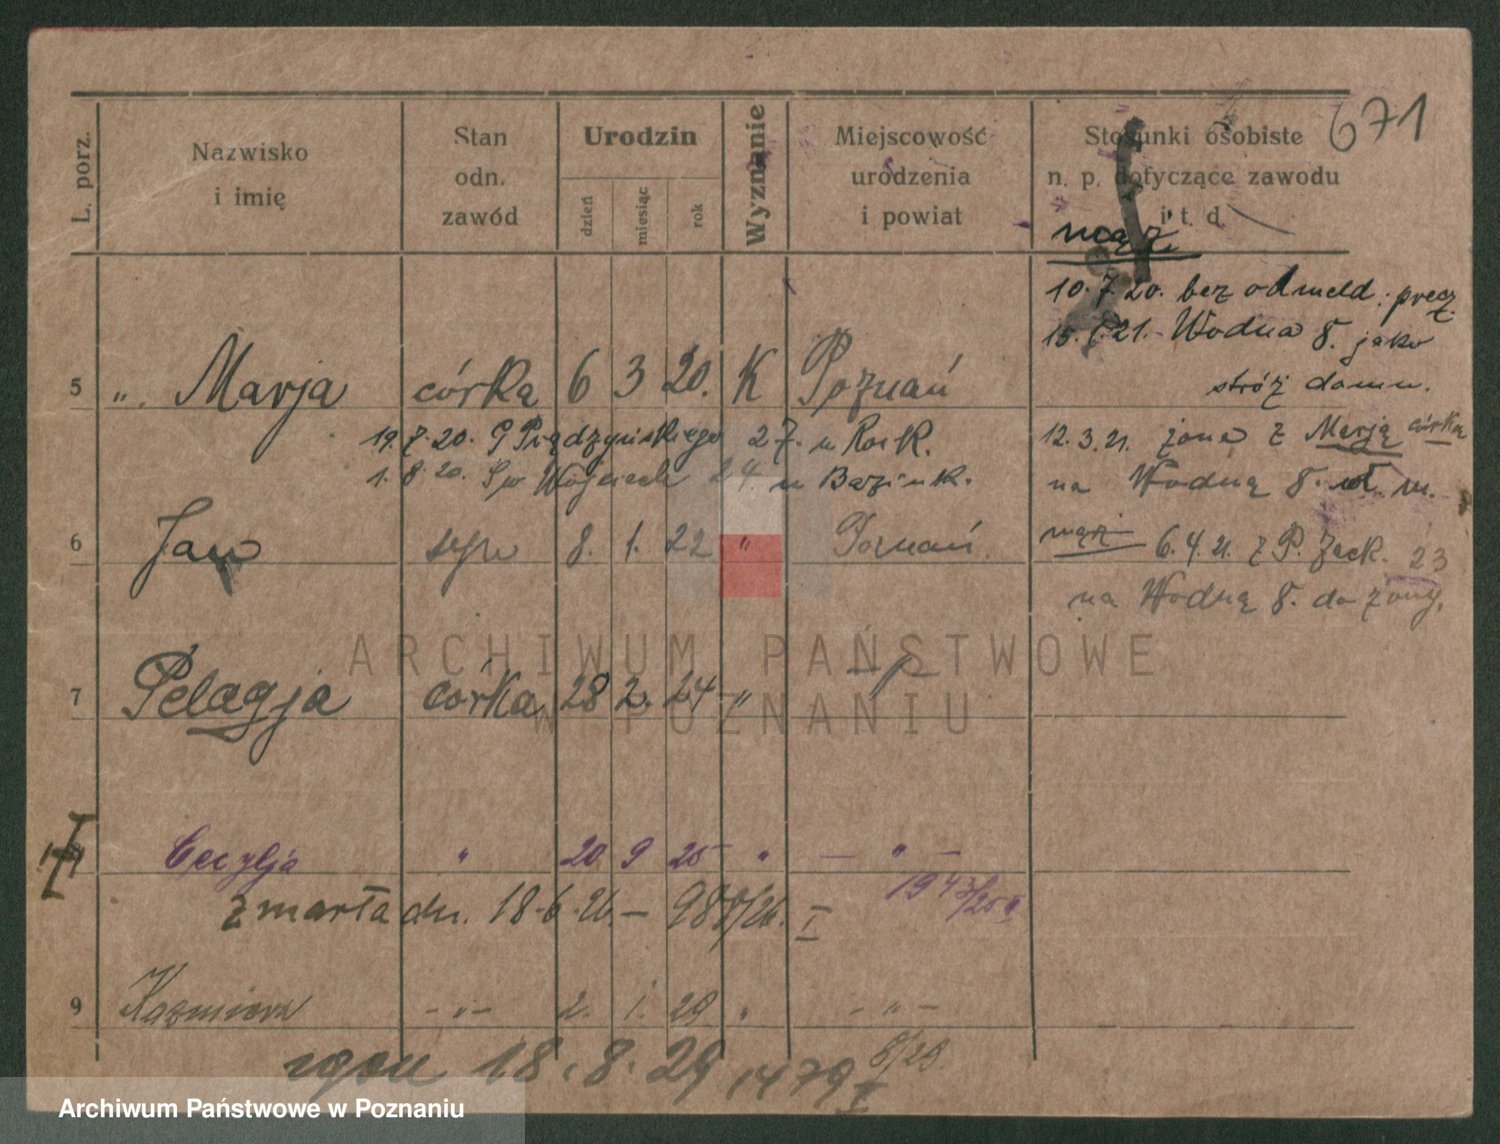 671
L. porz.
Nazwisko
i imię
Stan
odn.
zawód
Urodzin
dzień
miesiąc
rok
Wyznanie
Miejscowość
urodzenia
i powiat
Stosunki osobiste
n. p. dotyczące zawodu
i t. d.
mąż
10.7.20. bez odmeld. precz
15. .21. Wodna 8. jako
stróż domu.
5 „ Marja córka 6 3 20. K Poznań
19.7.20. Prądzyńskiego 27. u
1.8.20. Wojciech 24 u
12.3.21. żona z Marją córką
na Wodną 8. wł. m.
6 Jan syn 8. 1. 22 „ Poznań
mąż 6.4.21. z P. Jack. 23
na Wodną 8. do żony.
7 Pelagja córka 28 2. 24 „
Cecylja „ 20 9 25 „ — „ —
1943/25
zmarła dn. 18.6.26. — 988/26. I
9 Kazmiera - „ - 2. 1. 29 „ - „ -
zgon 18.8.29 1479 8/29.
I
ARCHIWUM PAŃSTWOWE
W POZNANIU
Archiwum Państwowe w Poznaniu